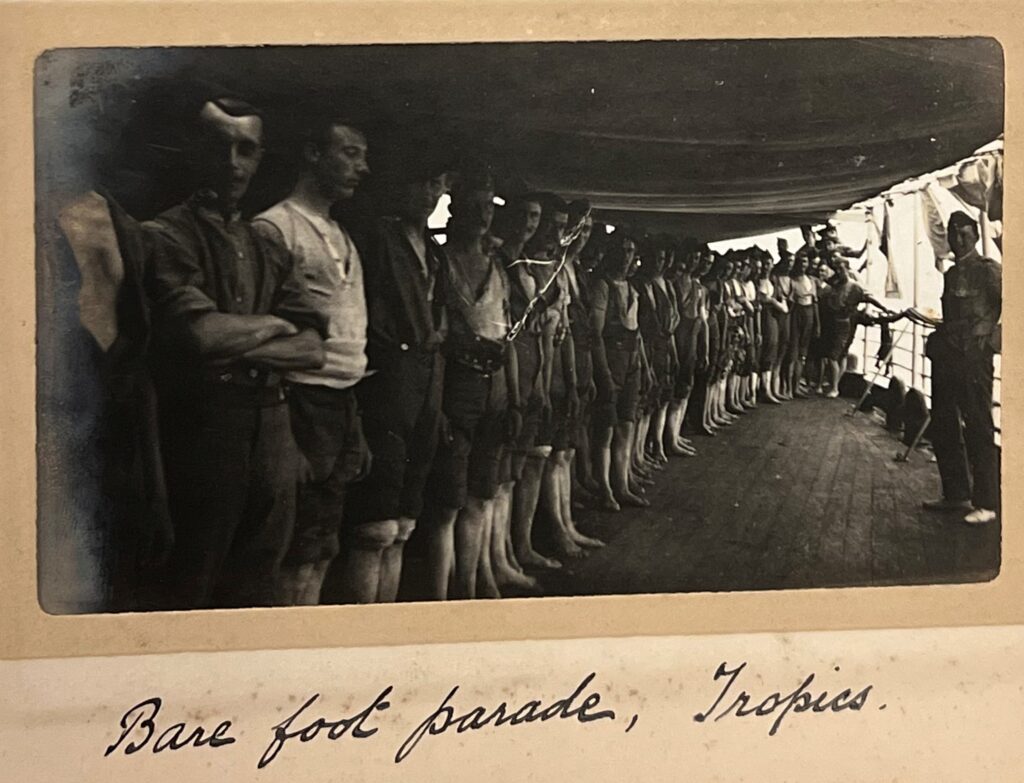 Bare foot parade, Tropics.